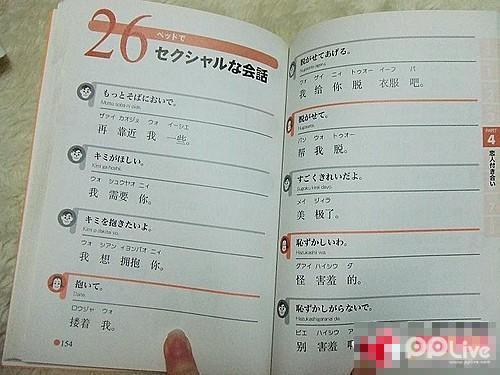 26
ベッドで
セクシャルな会話
もっとそばにおいで。
Motto soba ni oide.
ザァイ カオジェ ウォ イーシエ
再 靠近 我 一些。
キミがほしい。
Kimi ga hoshii.
ウォ シュウヤオ ニィ
我 需要 你。
キミを抱きたいよ。
Kimi o dakitai yo.
ウォ シアン イヨンバオ ニィ
我 想 拥抱 你。
抱いて。
Daite.
ロウジャ ウォ
搂着 我。
154
脱がせてあげる。
Nugasete ageru.
ウォ ゲイ ニィ トゥオー イーフ バ
我 给 你 脱 衣服 吧。
脱がせて。
Nugasete.
バン ウォ トゥオー
帮 我 脱。
すごくきれいだよ。
Sugoku kirei dayo.
メイ ジィラ
美 极了。
恥ずかしいわ。
Hazukashii wa.
グアイ ハイシウ ダ
怪 害羞 的。
恥ずかしがらないで。
Hazukashigaranai de.
ビエ ハイシウ ア
别 害羞
PART
4
恋人付き合い
PPLive